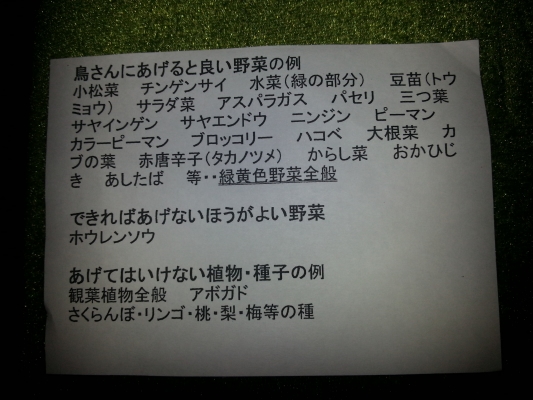 鳥さんにあげると良い野菜の例
小松菜　チンゲンサイ　水菜（緑の部分）　豆苗（トウ
ミョウ）　サラダ菜　アスパラガス　パセリ　三つ葉
サヤインゲン　サヤエンドウ　ニンジン　ピーマン
カラーピーマン　ブロッコリー　ハコベ　大根菜　カ
ブの葉　赤唐辛子（タカノツメ）　からし菜　おかひじ
き　あしたば　等・・緑黄色野菜全般
できればあげないほうがよい野菜
ホウレンソウ
あげてはいけない植物・種子の例
観葉植物全般　アボガド
さくらんぼ・リンゴ・桃・梨・梅等の種